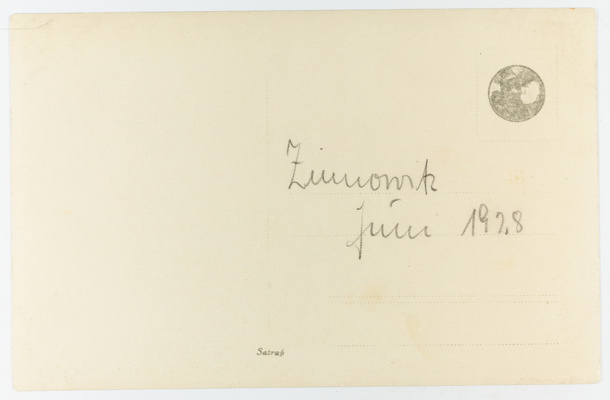 Zinnowitz
Juni 1928
Satrap